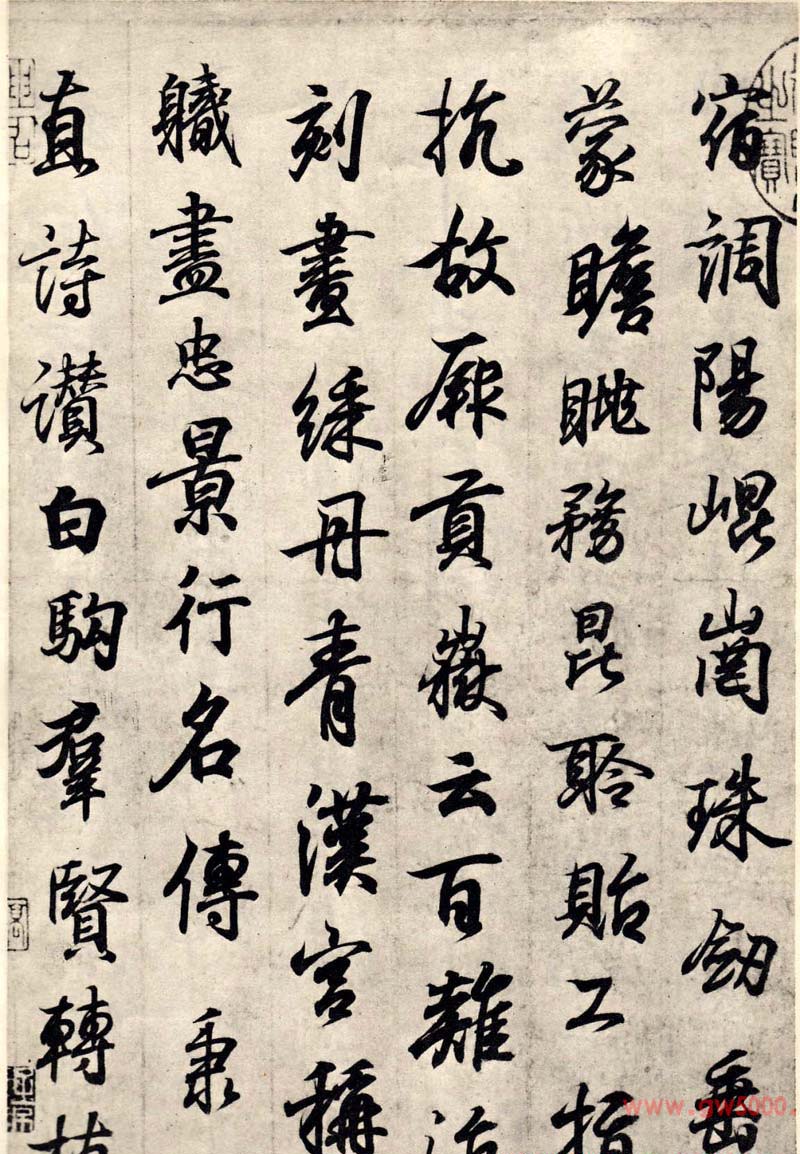 宿調陽崐崗珠劔垂
蒙瞻眺務昆聆貽工指
抗故厥貢嶽云百治
刻畫綵丹青漢宮稱
軄盡忠景行名傳秉
直詩讃白駒羣賢轉
寶
www.gw5000.